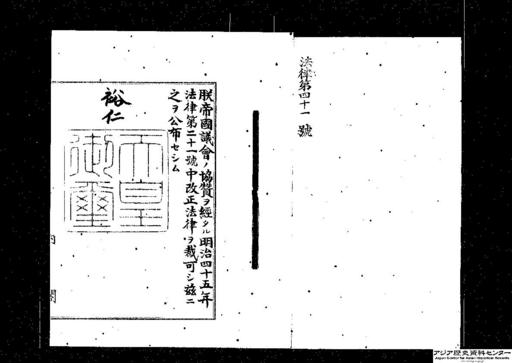 法律第四十一號
朕帝國議會ノ協贊ヲ經タル明治四十五年
法律第二十一號中改正法律ヲ裁可シ茲ニ
之ヲ公布セシム
裕仁
天皇
御璽
アジア歴史資料センター
Japan Center for Asian Historical Records